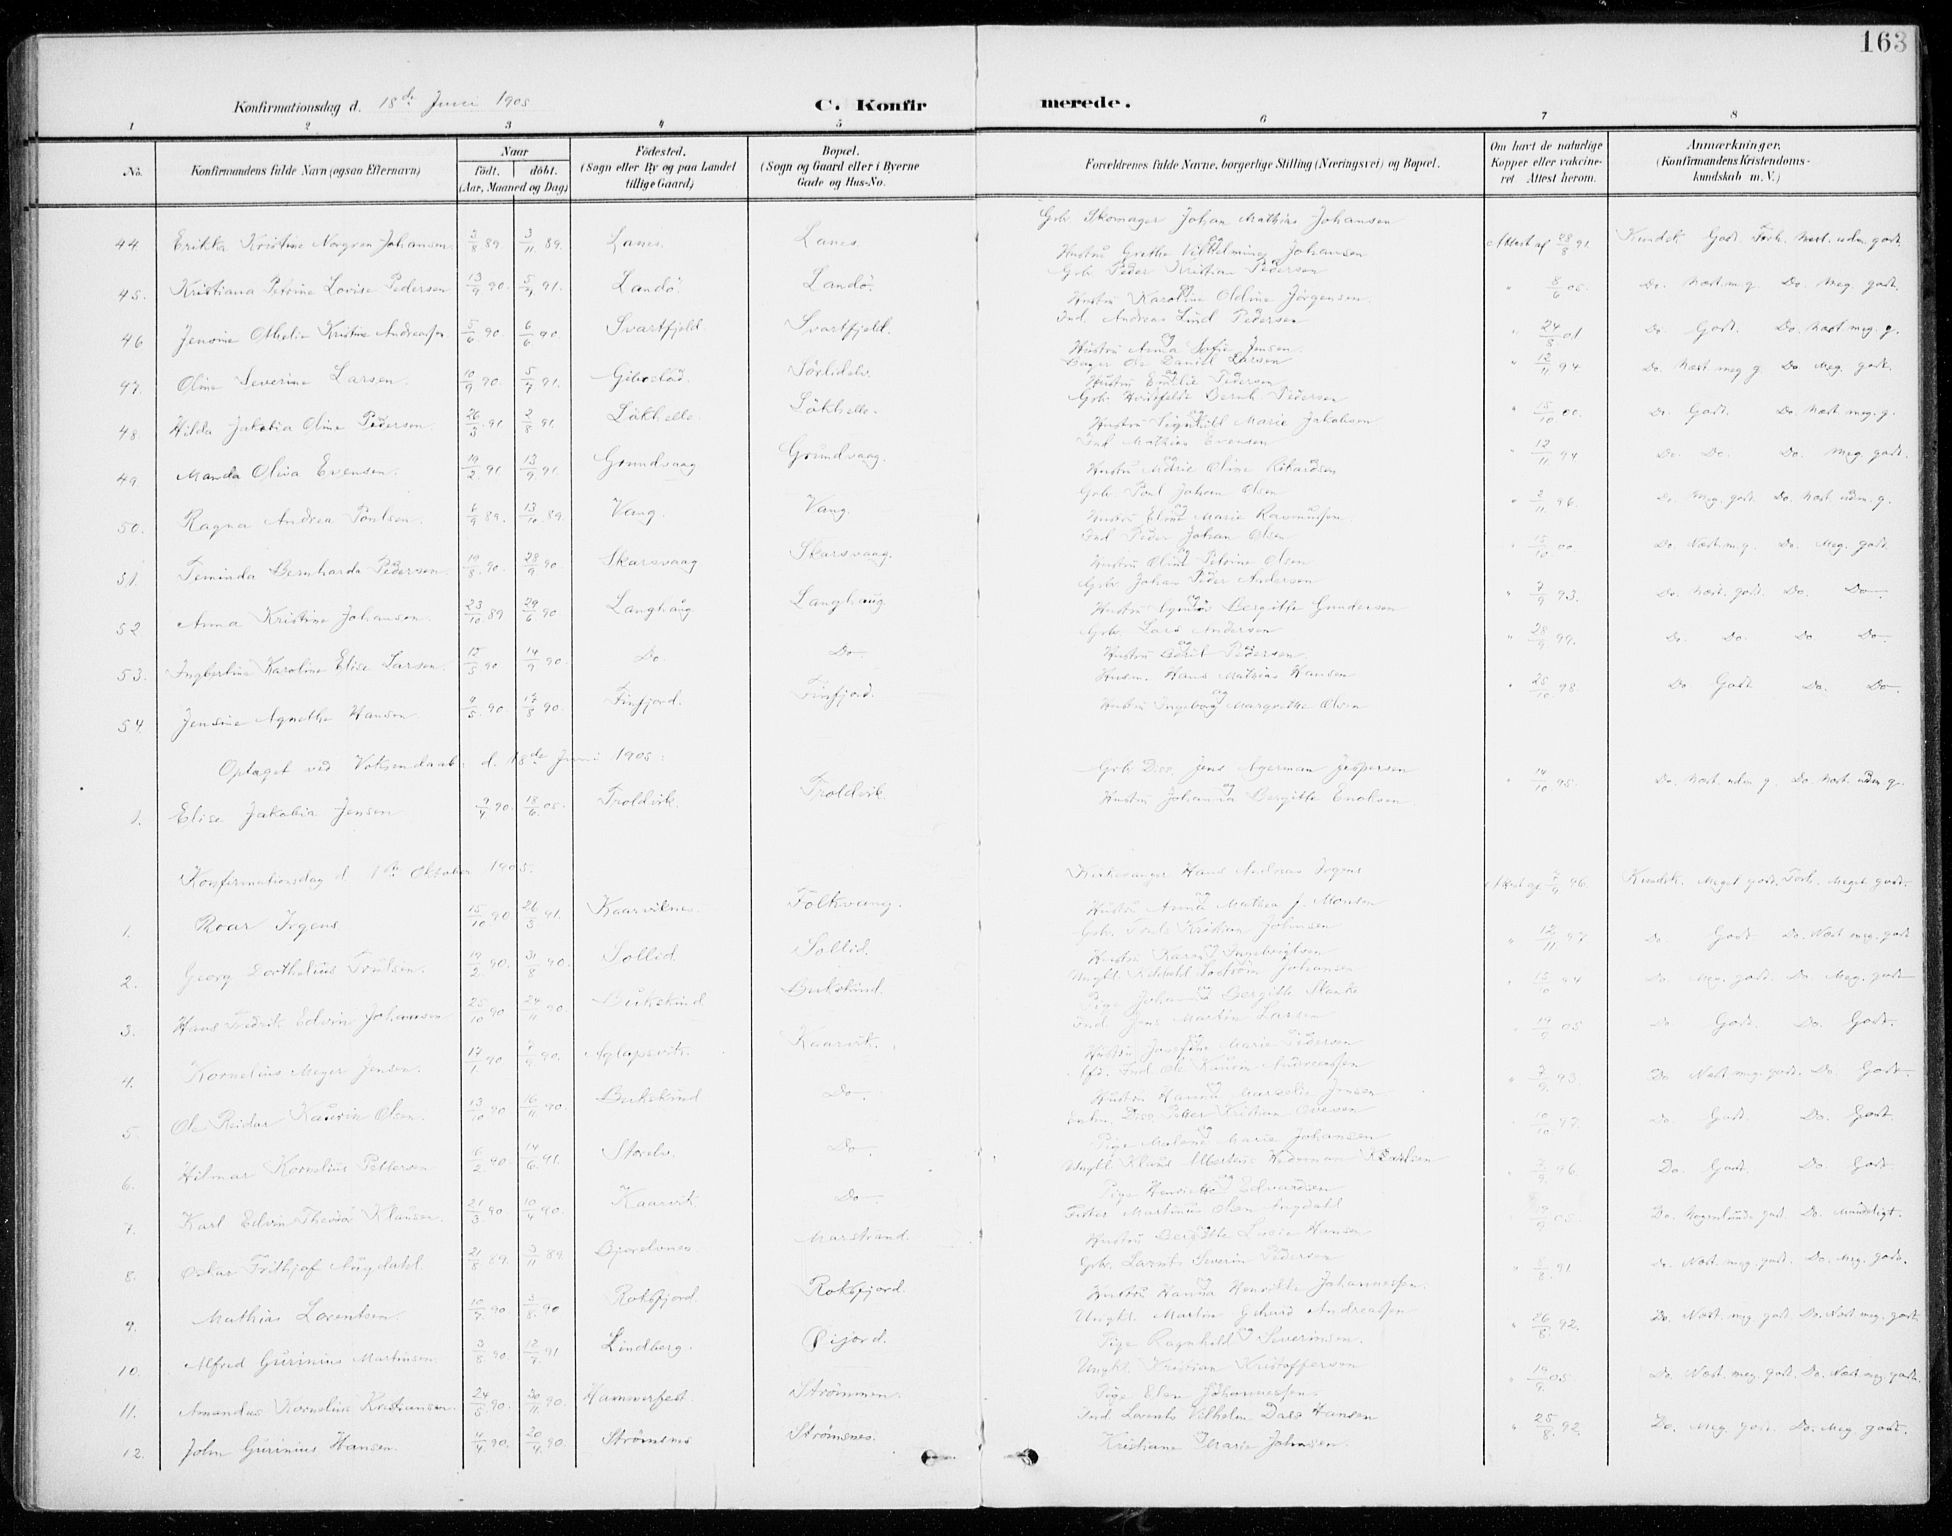 163
Konfirmationsdag d. 18de Juni 1905
C. Konfirmerede.
1 2 3 4 5 6 7 8
No. Konfirmandens fulde Navn (ogsaa Efternavn) Naar født. døbt. (Aar, Maaned og Dag) Fødested. (Sogn eller By og paa Landet tillige Gaard) Bopæl. (Sogn og Gaard eller i Byerne Gade og Hus-No. Forældrenes fulde Navne, borgerlige Stilling (Næringsvei) og Bopæl. Om havt de naturlige Kopper eller vakcineret Attest herom. Anmærkninger. (Konfirmandens Kristendomskundskab m. V.)
Gbr. Skomager Johan Mathias Johansen
44. Erikka Kristine Norgren Johansen. 3/8 89 3/11 89. Lanes. Lanes. Attest af 28/8 91. Kundsk. Godt. Forh. Næst. uden godt.
og Hustru Grethe Vilhelmine Johansen
Gbr. Peder Kristian Pedersen
45. Kristiana Petrine Lovise Pedersen 13/9 90. 5/7 91. Landö Landö. " 8/6 05. Do. Næst m. g. Do. Meg. godt.
og Hustru Karoline Oldine Jørgensen.
Ind. Andreas Lind Pedersen
46 Jensine Othelie Kristine Andreassen 5/6 90. 6/6 90. Svartfjeld. Svartfjeld. " 24/5 01 Do. Godt. Do. Næst meg. g.
og Hustru Anna Sofie Jensen.
Ole Daniel Larsen
47. Oline Severine Larsen. 10/9 90. 5/7 91. Gibostad. " 12/11 94 Do. Næst meg g Do. Meg. godt.
og Hustru Emilie Pedersen
Gbr. Hvidfeldt Bernh. Pedersen
48. Hilda Jakobia Oline Pedersen 26/3 91 2/8 91. Lökhelle. Lökhelle. " 15/10 00. Do. Godt. Do. Næst meg. g.
og Hustru Marie Jakobsen
Ind Mathias Evensen
49. Manda Oliva Evensen. 19/2 91 13/9 91. Grundvaag Grundvaag. " 12/11 94 Do. Do. Do. Meg. godt.
og Hustru Marie Oline Rikardsen
Gbr. Poul Johan Olsen
50. Ragna Andrea Poulsen. 6/9 89. 13/10 89 Vang. Vang. " 2/11 96. Do. Meg. godt. Do. Næst uden. g.
og Hustru Eline Marie Rasmussen.
Ind Peder Johan Olsen
51. Teminda Bernharda Pedersen. 19/8 90. 28/9 90 Skarsvaag Skarsvaag. " 15/10 00 Do. Næst m. g. Do. Meg. godt
og Hustru Oline Petrine Olsen
Gbr. Johan Peder Andersen
52 Anna Kristine Johansen. 23/10 89 29/6 90 Langhaug Langhaug. " 7/9 93. Do. Næst. godt. Do. Do.
og Hustru Bergitte Gundersen
Gbr. Lars Andersen
53. Ingbertine Karoline Elise Larsen. 15/5 90 14/9 90. Do. Do. " 28/9 99. Do. Do. Do. Do.
og Hustru Pedersen.
Husm. Hans Mathias Hansen
54. Jensine Agnethe Hansen 4/5 90. 17/8 90. Finfjord. Finfjord. " 25/10 98. Do. Godt. Do. Do.
og Hustru Ingeborg Margrethe Olsen
Optaget ved Voksendaab: d. 18de Juni 1905:
Gbr. Diss. Jens Agerman Jespersen
1. Elise Jakobia Jensen 9/4 90. 18/6 05. Troldvik. Troldvik " 14/10 95. Do. Næst uden g. Do. Næst uden g.
og Hustru Johanna Bergitte Enoksen.
Konfirmationsdag d. 1ste Oktober 1905.
Kirkesanger Hans Andreas Irgens
1. Roar Irgens 15/10 90 26/3 91. Kaarviknes. Folkvang. Attest af 7/9 96. Kundsk. Meget godt. Forh. Meget godt.
og Hustru Anna Mathea J. Monsen
Gbr. Kristian Johnsen
2. Georg Dorthelius Trulsen. 19/2 90. 31/8 90. Sollid. Sollid. " 12/11 97 Do. Godt Do. Næst meg. godt
og Hustru Karen Ingebrigtsen
Ungkl. Johansen
3. Hans Fredrik Edvin Johansen 25/10 90 24/11 90. Bukskind Bukskind. " 15/10 94 Do. Meg. godt. Do. Meg. godt
og Pige Johanna Bergitte Slanke
Ind. Jens Martin Larsen
4. Kornelius Meyer Jensen. 17/1 90 7/9 90. Aglapsvik. Kaarvik. " 19/9 05 Do. Godt. Do. Godt.
og Hustru Josefine Marie Pedersen
Afd. Ind Ole Kaurin Andreassen
5. Ole Reidar Kaurin Olsen. 13/10 90 16/11 90. Bukskind Do. " 7/9 93. Do. Næst meg. godt. Do. Godt.
og Hustru Hanna Marselie Jensen
Diss. Petter Kristian Ovesen
6. Hilmar Kornelius Pettersen 6/2 90. 14/6 91. Storelv. Do. " 10/10 97. Do. Godt. Do. Godt.
og Pige Malene Marie Johansen
Ungkl Klaus Albertus
7. Karl Edvin Theodor Klausen. 21/3 90. 10/4 90. Kaarvik Do. " 7/9 96. Do. Godt. Do. Godt.
og Pige Henriette Edvardsen
Fisker Martinus Olsen Augdahl
8. Oskar Frithjof Augdahl. 21/8 89. 3/11 89. Bjorelvnes. Marstrand. " 19/9 05. Do. Nogenlunde godt. Do. Mindeligt.
og Hustru Bergitte Lucie Hansen
Gbr. Larents Severin Pedersen
9. Mathias Lorentsen. 10/7 90 3/8 90 Roksfjord. Roksfjord. " 8/8 91 Do. Næst meg. godt. Do. Meg. godt.
og Hustru Hanna Henrikke Johannessen.
Ungkl. Martin Gerhard Andreassen
10. Alfred Gurinius Martinsen. 3/8 90. 12/7 91 Lindberg. Øijord. " 26/8 92. Do. Næst. meg. godt Do. Næst meg. godt.
og Pige Ragnhild Severinsen.
Ungkl. Kristian Kristoffersen
11. Amandus Kornelius Kristiansen. 24/5 90. 30/11 90. Hammerfest. Strømmen. " 19/9 05 Do. Næst. meg. godt. Do. Næst meg. godt.
og Pige Elen Johannessen.
Ind Lorents Vilhelm Dass Hansen
12. John Gurinius Hansen. 4/4 90. 20/4 90. Strømsnes Strømsnes. " 25/8 92. Do. Meg. godt. Do. Meg godt.
Kristiane Marie Johnsen.